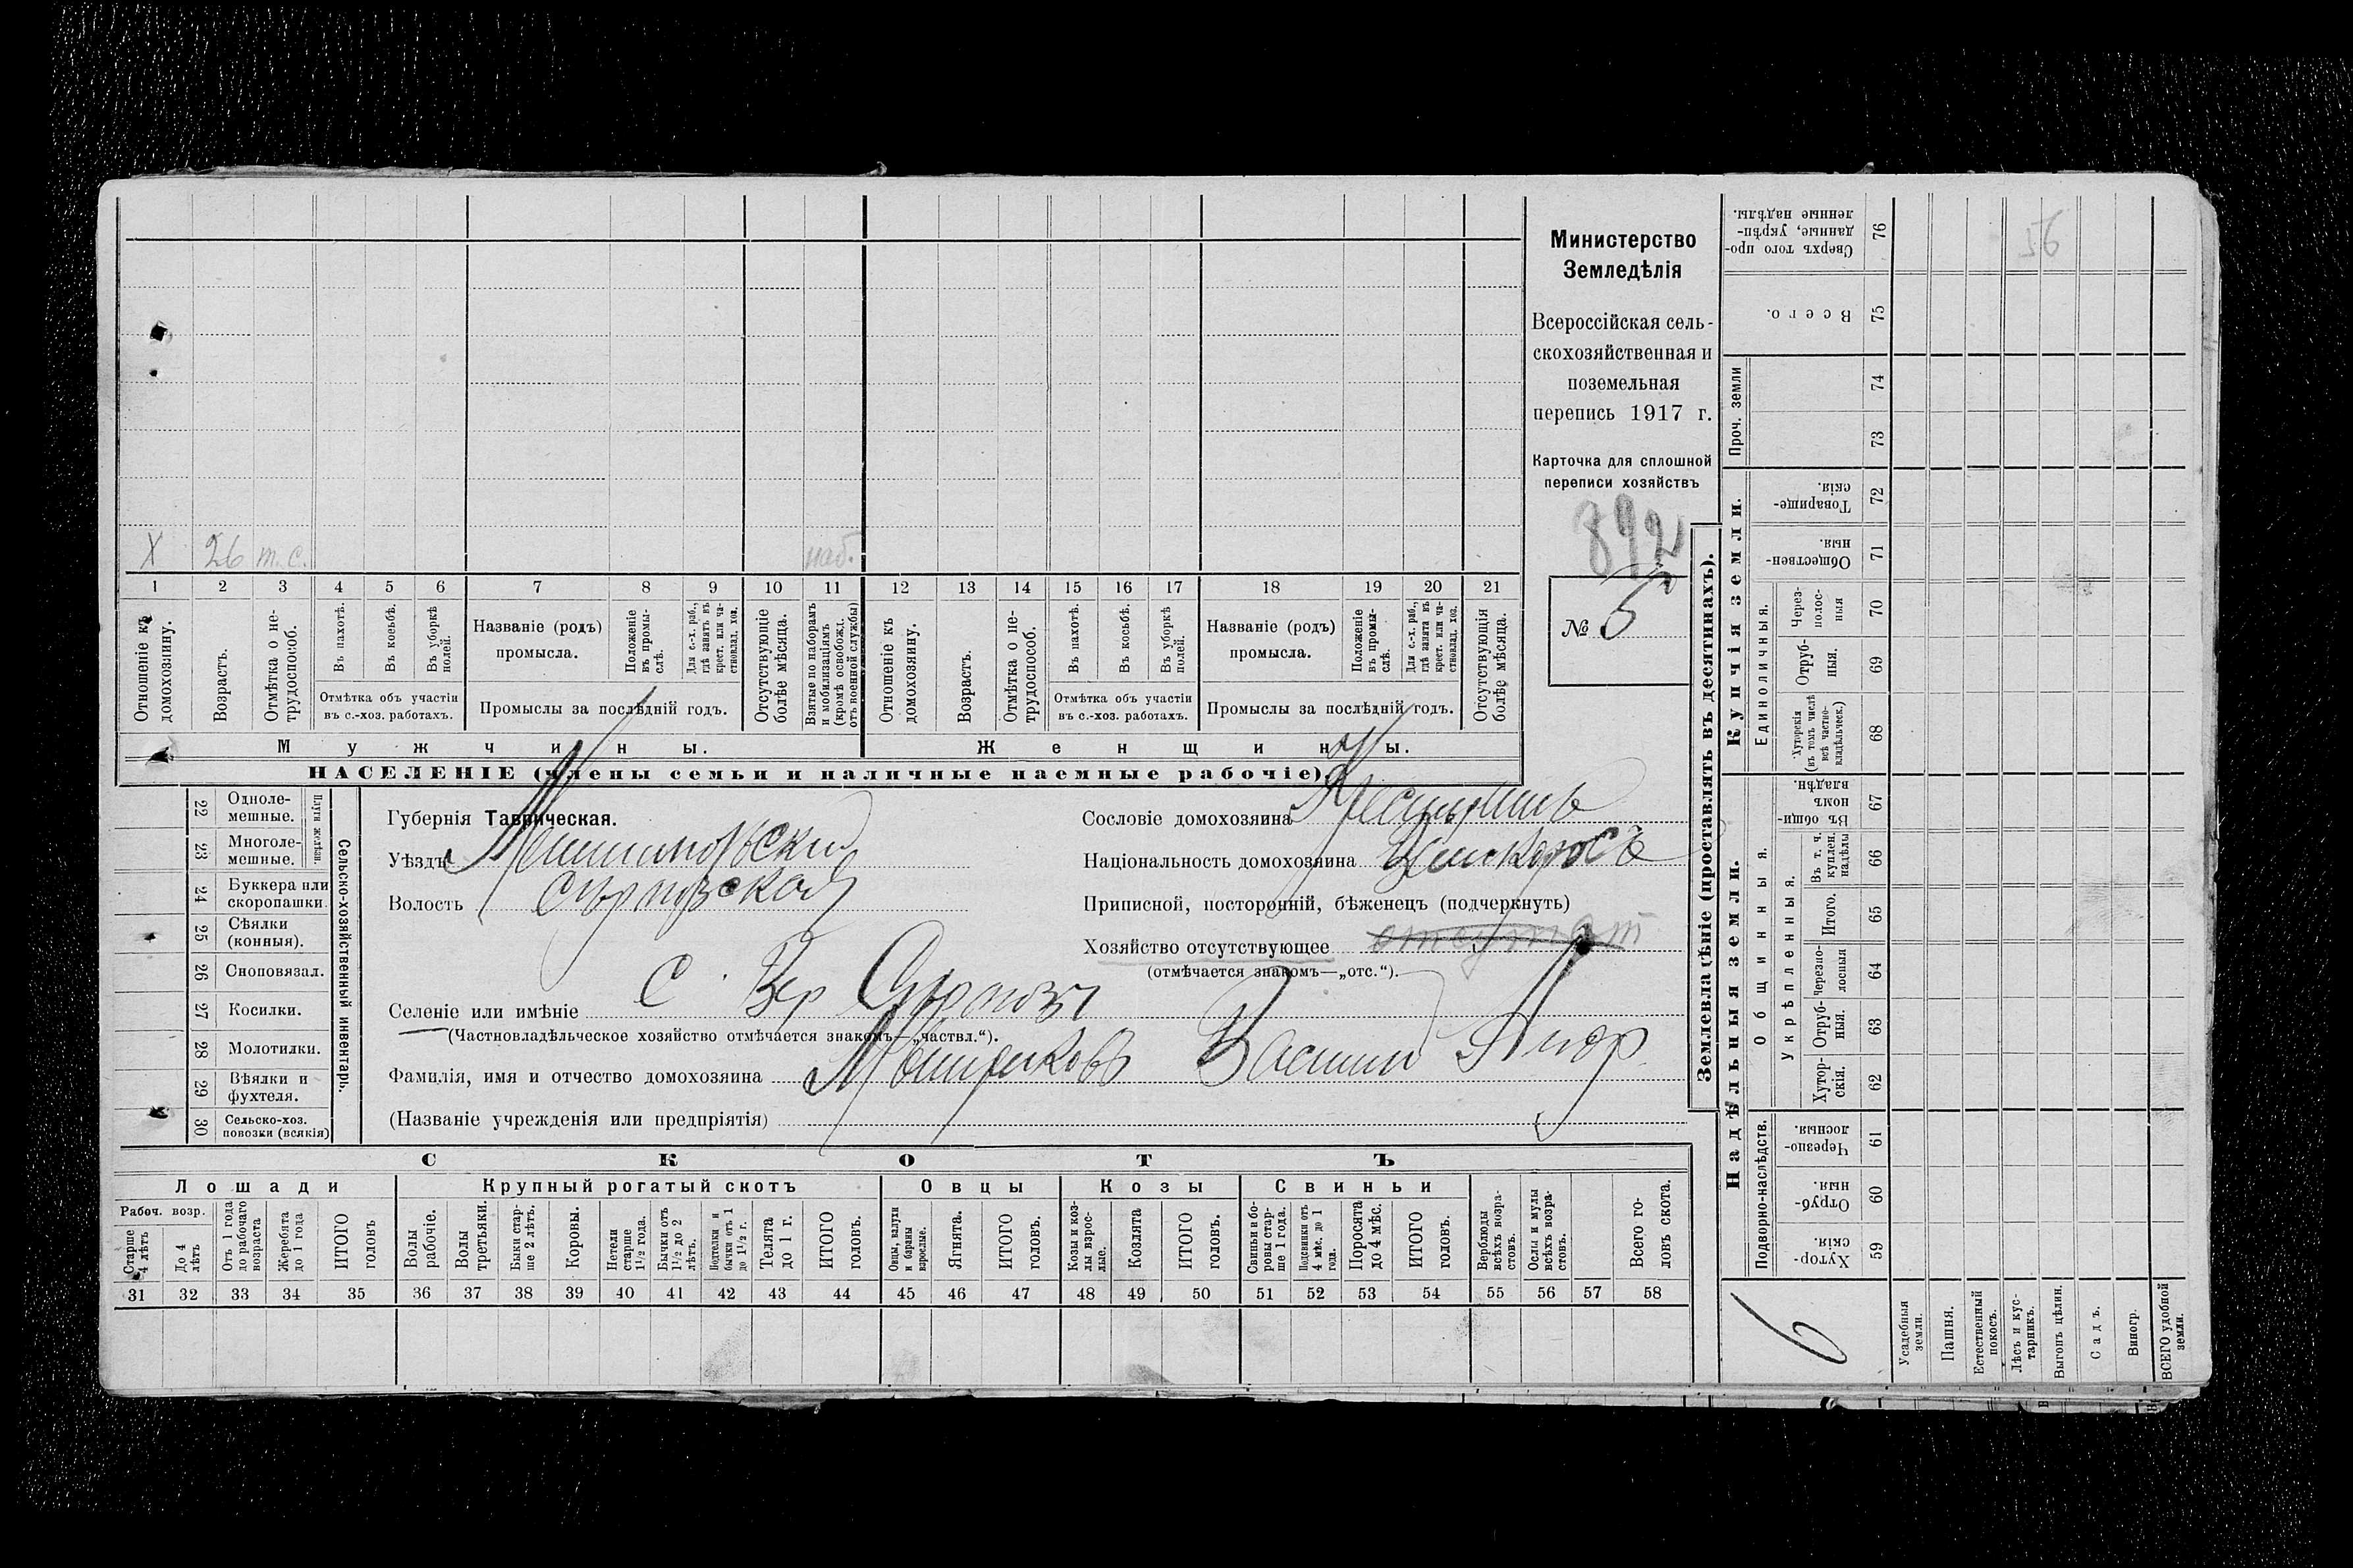 Министерство
Земледѣлія
Всероссійская сель-
скохозяйственная и
поземельная
перепись 1917 г.
Карточка для сплошной
переписи хозяйствъ
892
№ 5
Х 26 т.с. моб.
1 2 3 4 5 6 7 8 9 10 11 12 13 14 15 16 17 18 19 20 21
Отношеніе къ домохозяину.
Возрастъ.
Отмѣтка о не-трудоспособ.
Въ пахотѣ.
Въ косьбѣ.
Въ уборкѣ полей.
Отмѣтка объ участіи
въ с.-хоз. работахъ.
Названіе (родъ)
промысла.
Положеніе въ промы-слѣ.
Для с.-х. раб., гдѣ занятъ въ крест. или ча-стновлад. хоз.
Промыслы за послѣдній годъ.
Отсутствующіе болѣе мѣсяца.
Взятые по наборамъ и мобилизаціямъ (кромѣ освобожд. отъ военной службы)
Отношеніе къ домохозяину.
Возрастъ.
Отмѣтка о не-трудоспособ.
Въ пахотѣ.
Въ косьбѣ.
Въ уборкѣ полей.
Отмѣтка объ участіи
въ с.-хоз. работахъ.
Названіе (родъ)
промысла.
Положеніе въ промы-слѣ.
Для с.-х. раб., гдѣ занята въ крест. или ча-стновлад. хоз.
Промыслы за послѣдній годъ.
Отсутствующія болѣе мѣсяца.
Мужчины. Женщины.
НАСЕЛЕНІЕ (члены семьи и наличные наемные рабочіе).
Сельско-хозяйственный инвентарь.
Плуги желѣзн.
22 Одноле-мешные.
23 Многоле-мешные.
24 Буккера или скоропашки.
25 Сѣялки (конныя).
26 Сноповязал.
27 Косилки.
28 Молотилки.
29 Вѣялки и фухтеля.
30 Сельско-хоз. повозки (всякія)
Губернія Таврическая.
Уѣздъ
Волость
Селеніе или имѣніе С. Вер
(Частновладѣльческое хозяйство отмѣчается знакомъ—„частвл.“).
Фамилія, имя и отчество домохозяина
(Названіе учрежденія или предпріятія)
Сословіе домохозяина
Національность домохозяина
Приписной, посторонній, бѣженецъ (подчеркнуть)
Хозяйство отсутствующее отсутст
(отмѣчается знакомъ—„отс.“).
СКОТЪ
Лошади
Рабоч. возр.
Старше 4 лѣтъ
До 4 лѣтъ
Отъ 1 года до рабочаго возраста
Жеребята до 1 года
ИТОГО головъ
Крупный рогатый скотъ
Волы рабочіе.
Волы третьяки.
Быки стар-ше 2 лѣтъ.
Коровы.
Нетели старше 1½ года.
Бычки отъ 1½ до 2 лѣтъ.
Подтелки и бычки отъ 1 до 1½ г.
Телята до 1 г.
ИТОГО головъ.
Овцы
Овцы, валухи и бараны взрослые.
Ягнята.
ИТОГО головъ.
Козы
Козы и коз-лы взрос-лые.
Козлята
ИТОГО головъ.
Свиньи
Свиньи и бо-ровы стар-ше 1 года.
Подсвинки отъ 4 мѣс. до 1 года.
Поросята до 4 мѣс.
ИТОГО головъ.
Верблюды всѣхъ возра-стовъ.
Ослы и мулы всѣхъ возра-стовъ.
Всего го-ловъ скота.
31 32 33 34 35 36 37 38 39 40 41 42 43 44 45 46 47 48 49 50 51 52 53 54 55 56 57 58
Землевладѣніе (проставлять въ десятинахъ).
Купчія земли.
Надѣльныя земли.
Сверхъ того про-данные, укрѣп-ленные надѣлы. 76
56
Всего. 75
Проч. земли
74
73
Товарище-скія. 72
Обществен-ныя. 71
Единоличныя.
Через-полос-ныя 70
Отруб-ныя. 69
Хуторскія (въ томъ числѣ всѣ частно-владѣльческ.) 68
Общинныя.
Въ общин-номъ владѣн. 67
Въ т. ч. куплен. надѣлы 66
Укрѣпленныя.
Итого. 65
Черезпо-лосныя 64
Отруб-ныя. 63
Хутор-скія. 62
Подворно-наслѣдств.
Черезпо-лосныя. 61
Отруб-ныя. 60
Хутор-скія. 59
6
Усадебныя земли.
Пашня.
Естественный покосъ.
Лѣсъ и кус-тарникъ.
Выгонъ цѣлин.
Садъ.
Виногр.
ВСЕГО удобной земли.